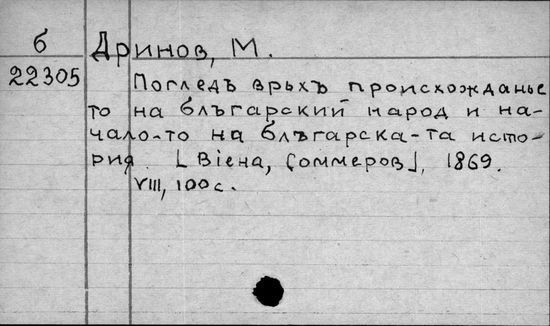 б
22305
Дринов, М.
Погледъ врьхъ происхожданье
то на блъгарский народ и на-
чало-то на блъгарска-та исто-
рия. [Виена, Соммеров], 1869.
VIII, 100 с.